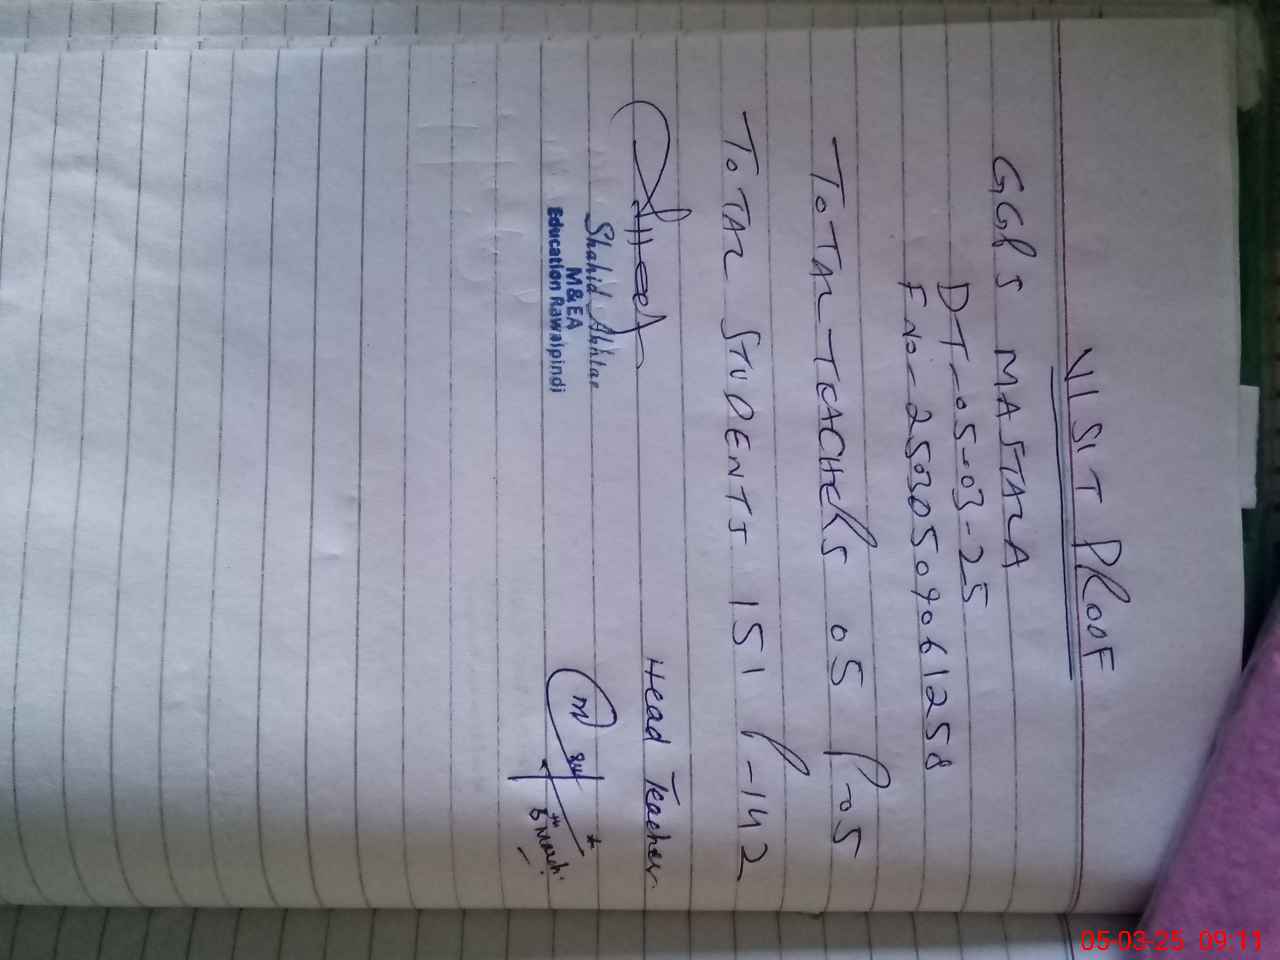 VISIT PROOF
GGPS MASTALA
DT-05-03-25
F No-25030509061258
TOTAL TEACHERS 05 P-05
TOTAL STUDENTS 151 P-142
Head Teacher
Shahid Akhtar
M&EA
Education Rawalpindi
March
05-03-25 09:11